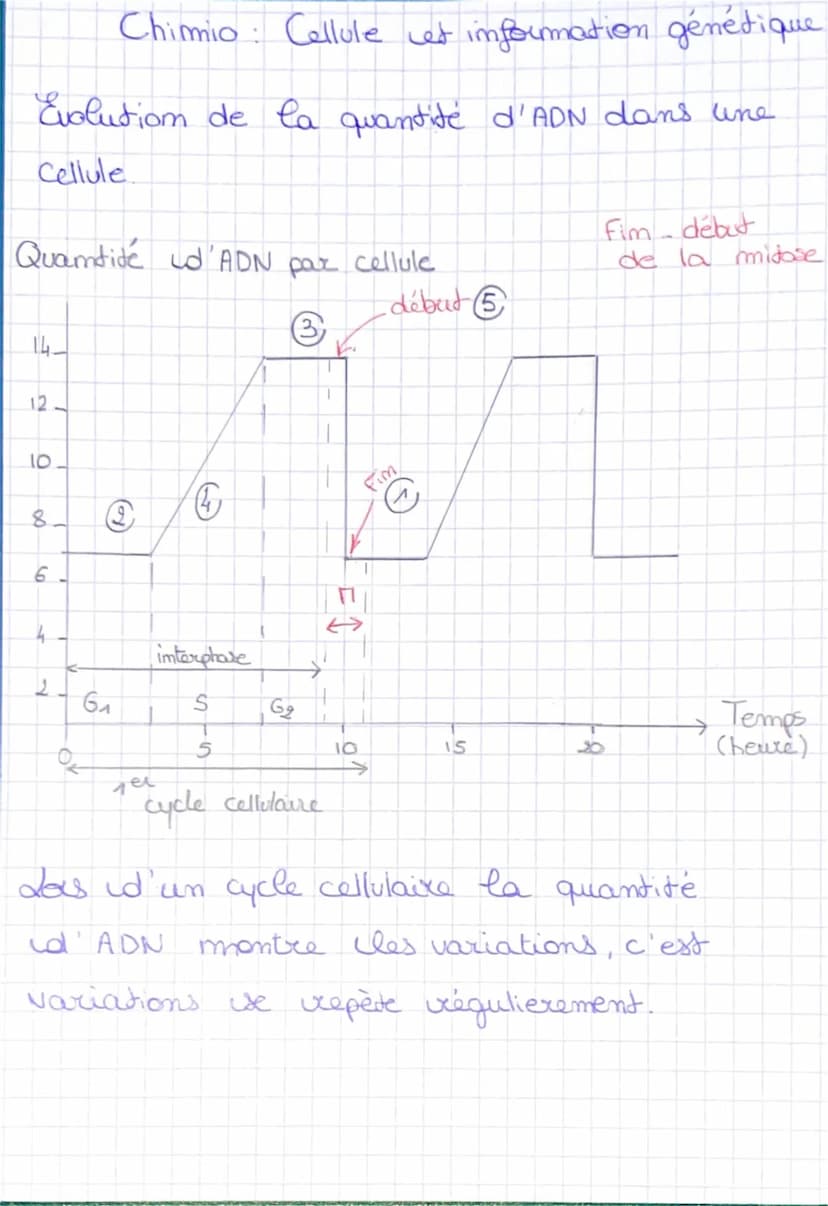 Chimio : Cellule et information génétique
Évolution de la quantité d'ADN dans une
cellule.
Fin - début
de la mitose
Quantité d'ADN par cellule
début ⑤
③
14
12
10
Fin
①
④
②
8
6
M
4
interphase
2
G1 S G2
Temps
(heure)
0 5 10 15 20
1er
cycle cellulaire
Lors d'un cycle cellulaire la quantité
d'ADN montre des variations, c'est
variations se repète régulierement.